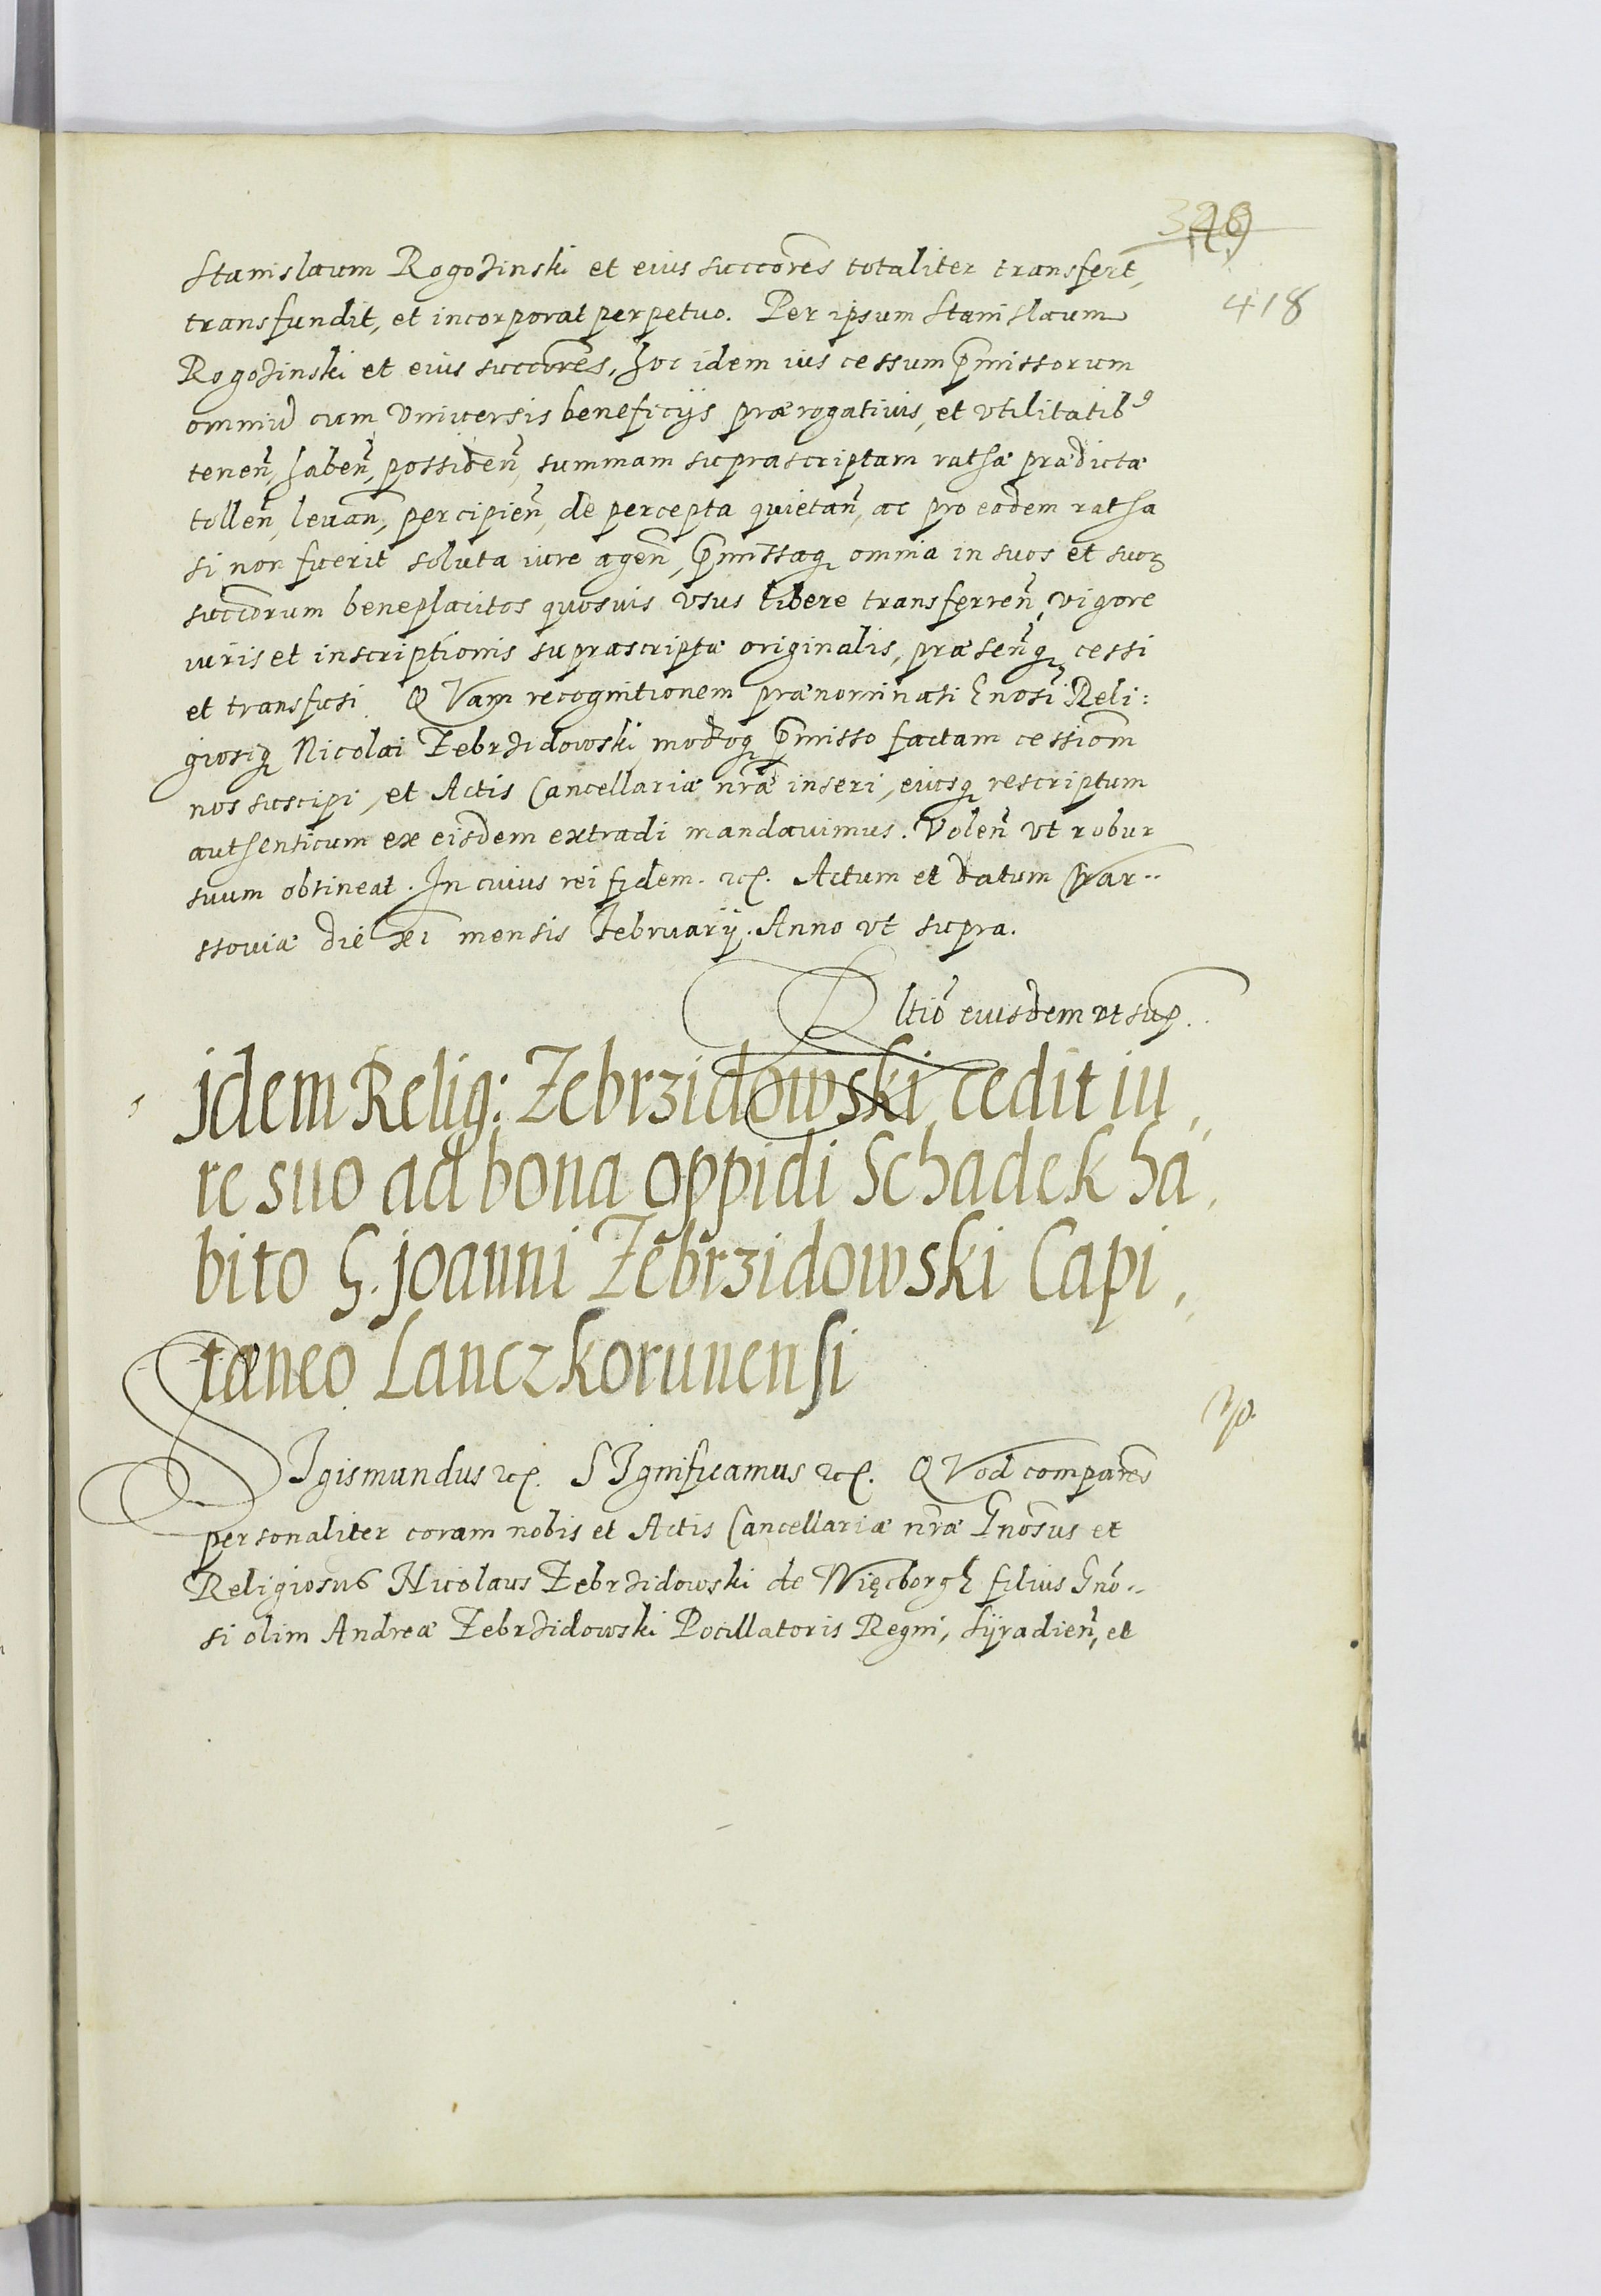 418
Stanislaum Rogozinski et eius succōres totaliter transfert,
transfundit, et incorporat perpetuo. Per ipsum Stanislaum
Rogozinski et eius succōres, hoc idem ius cessum p̄missorum
omniū cum vniuersis beneficijs prærogatiuis, et vtilitatib9
tenen̄, haben̄, possiden̄, summam suprascriptam rathæ prædictæ
tollen̄, leuan̄, percipien̄, de percepta quietan̄, ac pro eadem ratha
si non fuerit soluta iure agen̄, p̄missaq; omnia in suos et suoꝝ
succōrum beneplacitos quosuis vsus libere transferren̄, vigore
iuris et inscriptionis suprascriptæ originalis, præsen̄q; cessi
et transfusi. QVam recognitionem prænominati Gnosi Reli:
giosiq; Nicolai Zebrzidowski, modoq; p̄misso factam cessiōm
nos suscipi, et Actis Cancellariæ nr̄æ inseri, eiusq; rescriptum
authenticum ex eisdem extradi mandauimus. Volen̄ vt robur
suum obtineat. In cuius rei fidem. etc. Actum et datum War..
ssouiæ die xi mensis Februarij. Anno vt supra.
Rltiō eiusdem vt sup.
jdem Relig: Zebrzidowski cedit iu,,
re suo ad bona oppidi Schadek ha,,
bito G. joanni Zebrzidowski Capi,,
taneo Lanczkorunensi
SIgismundus etc. SIgnificamus etc. QVod comparēs
personaliter coram nobis et Actis Cancellariæ nr̄æ Gnōsus et
Religiosus Nicolaus Zebrzidowski de Więcborgh filius Gnō..
si olim Andreæ Zebrzidowski Pocillatoris Regni, Syradien̄, et